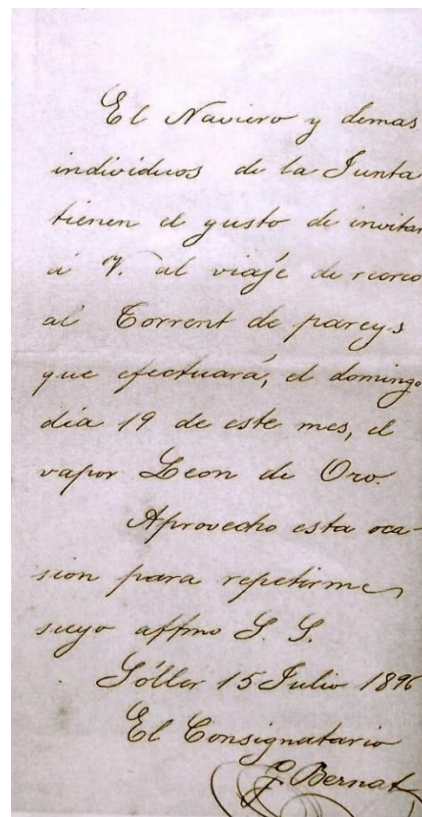 El Naviero y demas
individuos de la Junta
tienen el gusto de invitar
á V. al viaje de recreo
al Torrent de pareys
que efectuará, el domingo
dia 19 de este mes, el
vapor Leon de Oro.
Aprovecho esta oca-
sion para repetirme
suyo affmo S. S.
Sóller 15 Julio 1896
El Consignatario
G. Bernat